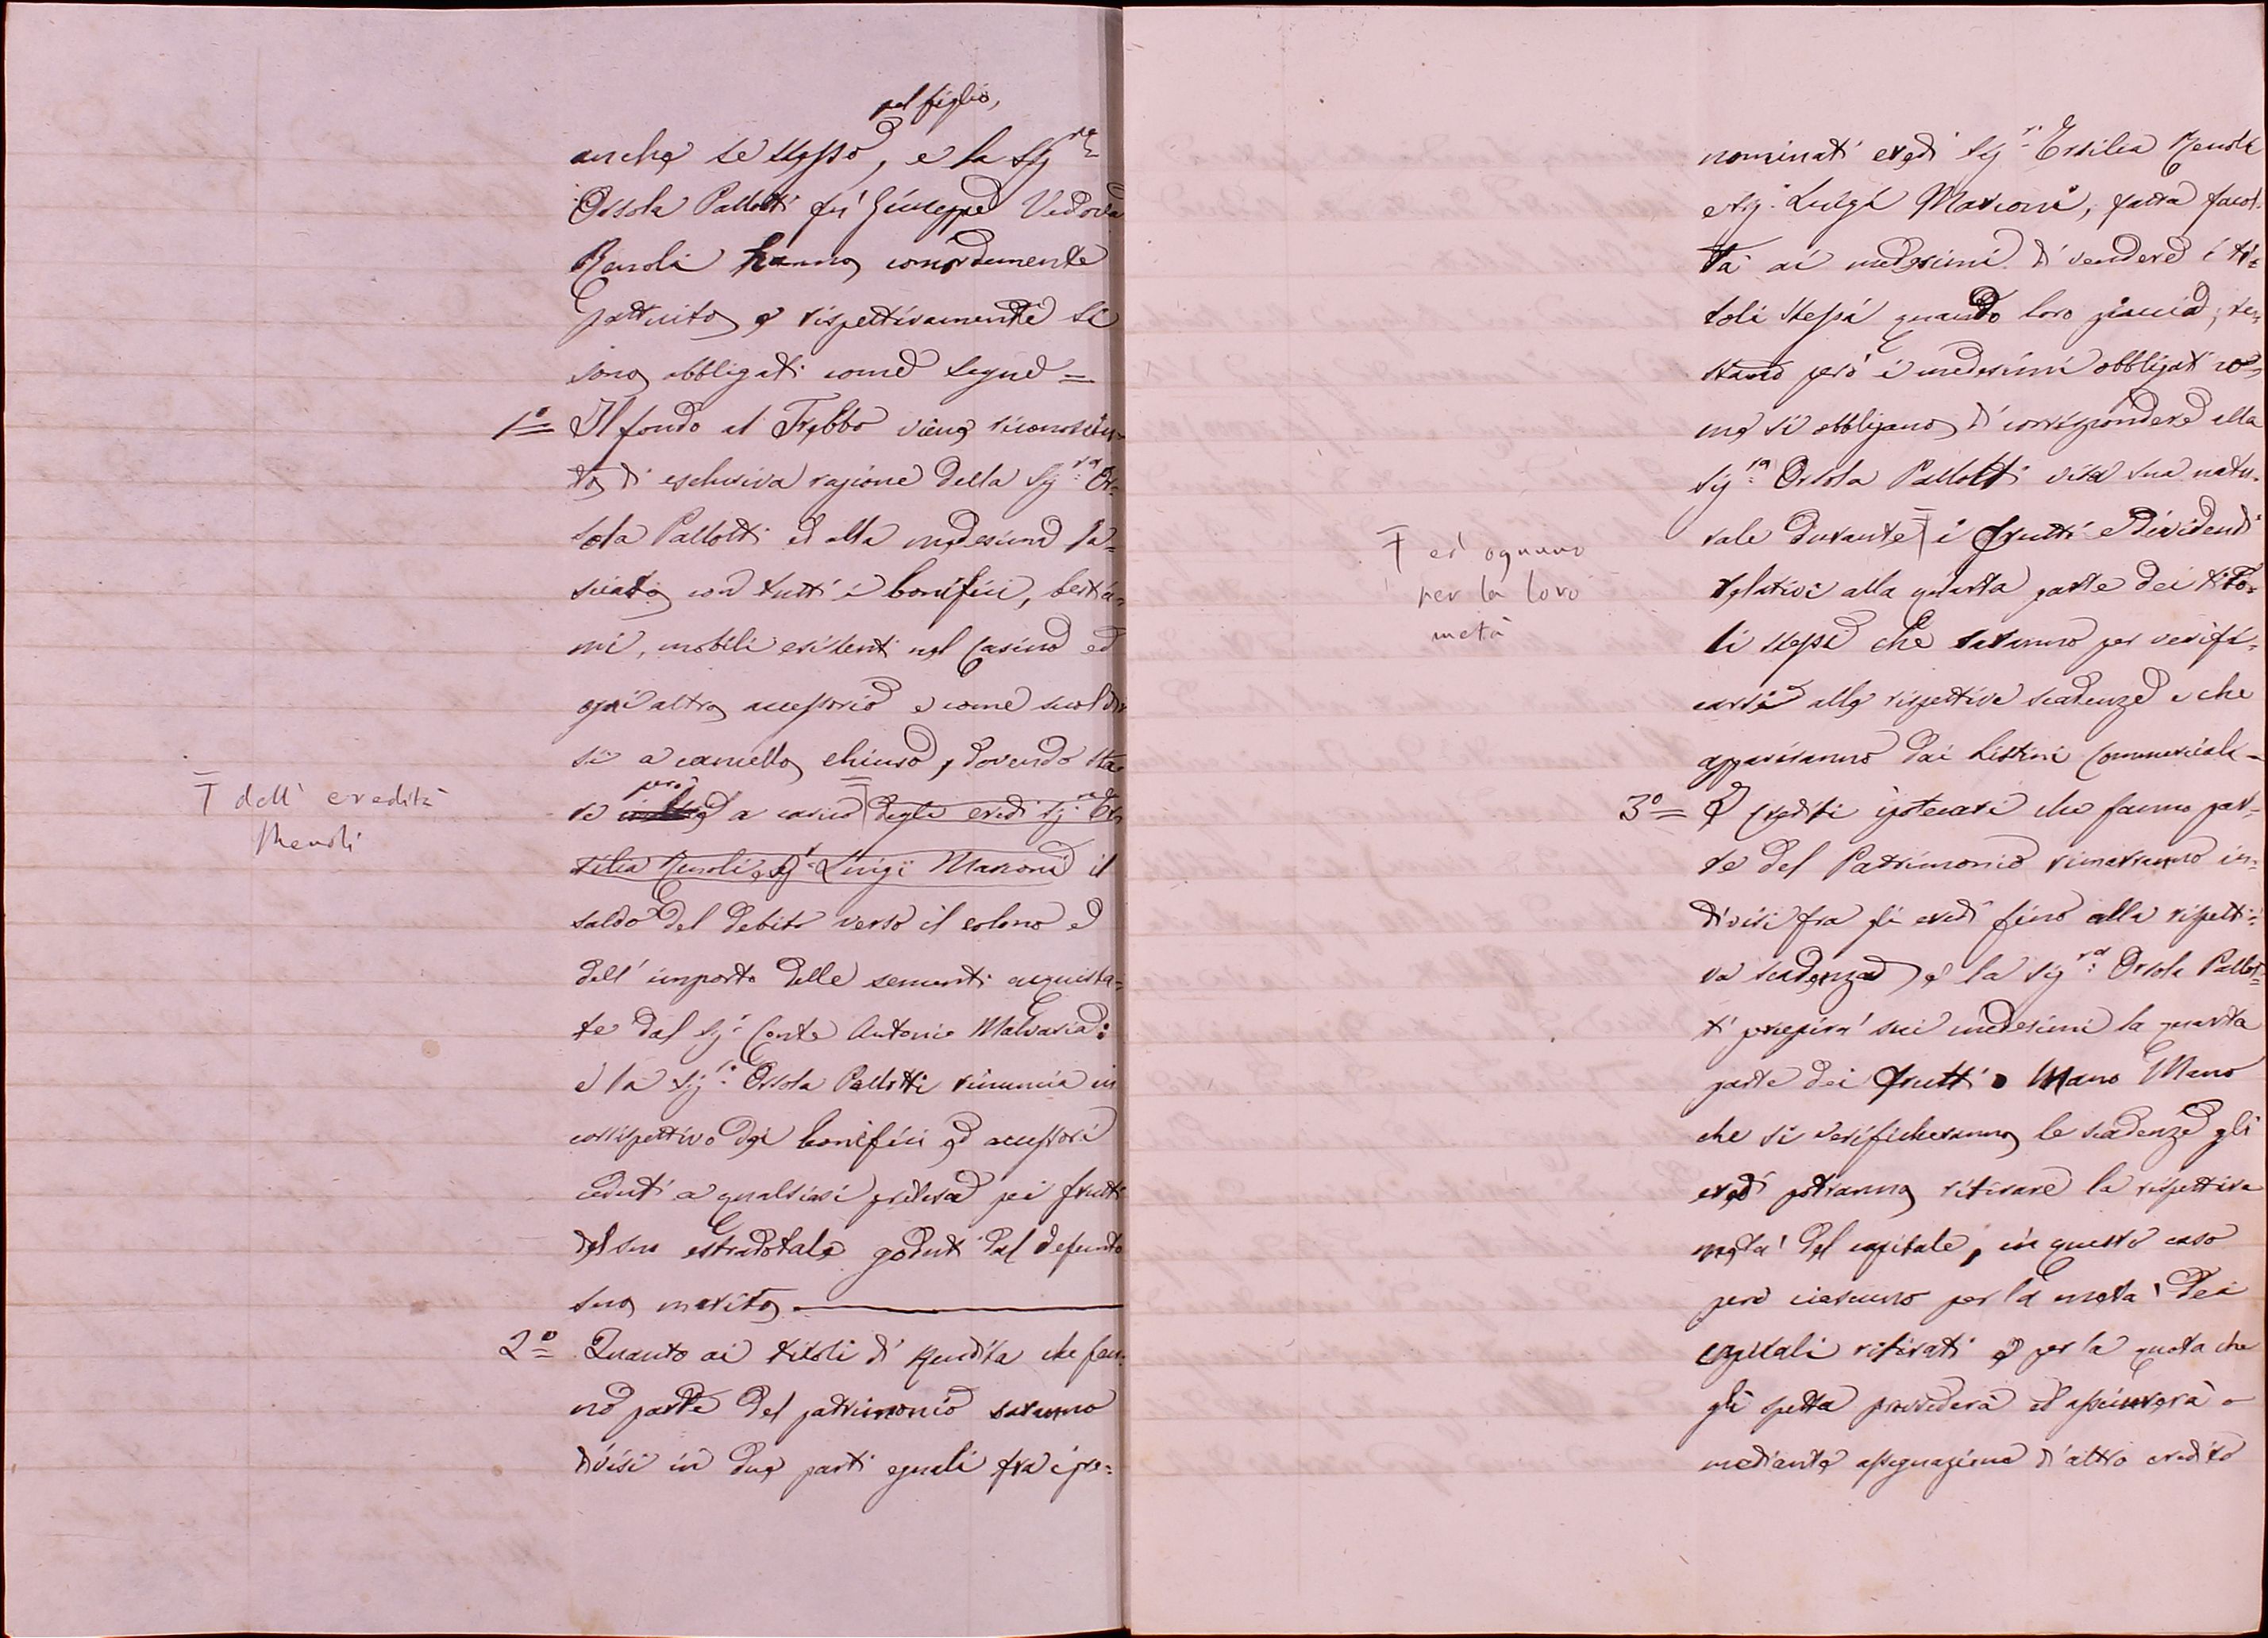 pel figlio,
anche se stesso, e la Sig.ra
Orsola Pallotti fu Giuseppe Vedova
Renoli hanno concordemente
pattuito e rispettivamente si
sono obbligati come segue =
1° Il fondo al Trebbo viene riconosciu-
to di esclusiva ragione della Sig.ra Or-
sola Pallotti ed alla medesima la-
sciato con tutti i bonifici, bestia-
mi, mobili esistenti nel Casino ed
ogni altro accessorio e come suol dir
si a cancello chiuso, dovendo sta-
re però a carico degli eredi Sig.ra Er-
T dell' eredità
Renoli
silia Renoli e Sig.r Luigi Marconi il
saldo del debito verso il colono e
dell' importo delle sementi acquista-
te dal Sig.r Conte Antonio Malvasia:
e la Sig.ra Orsola Pallotti rinuncia in
corrispettivo dei bonifici ed accessori
ceduti a qualsiasi pretesa pei frutti
del suo estradotale goduti dal defunto
suo marito
2° Quanto ai titoli di Rendita che fan-
no parte del patrimonio saranno
divisi in due parti eguali fra i pre-
nominati eredi Sig.ra Ersilia Renoli
e Sig. Luigi Marconi, fatta facol-
tà ai medesimi di vendere i ti-
toli stessi quando loro piaccia, re-
stando però i medesimi obbligati co-
me si obbligano di corrispondere alla
Sig.ra Orsola Pallotti vita sua natu-
rale durante T i frutti e dividendi
T ed ognuno
per la loro
metà
relativi alla quarta parte dei tito-
li stessi che saranno per verifi-
carsi alle rispettive scadenze e che
appariranno dai Listini Commerciali -
3° I Crediti ipotecari che fanno par-
te del Patrimonio rimarranno in-
divisi fra gli eredi fino alla rispetti-
va scadenza, e la Sig.ra Orsola Pallot-
ti percepirà sui medesimi la quarta
parte dei frutti. Mano Mano
che si verificheranno le scadenze gli
eredi potranno ritirare la rispettiva
metà del capitale, in questo caso
però ciascuno per la metà dei
capitali ritirati e per la quota che
gli spetta provvederà ed assicurerà o
mediante assegnazione d'altro credito